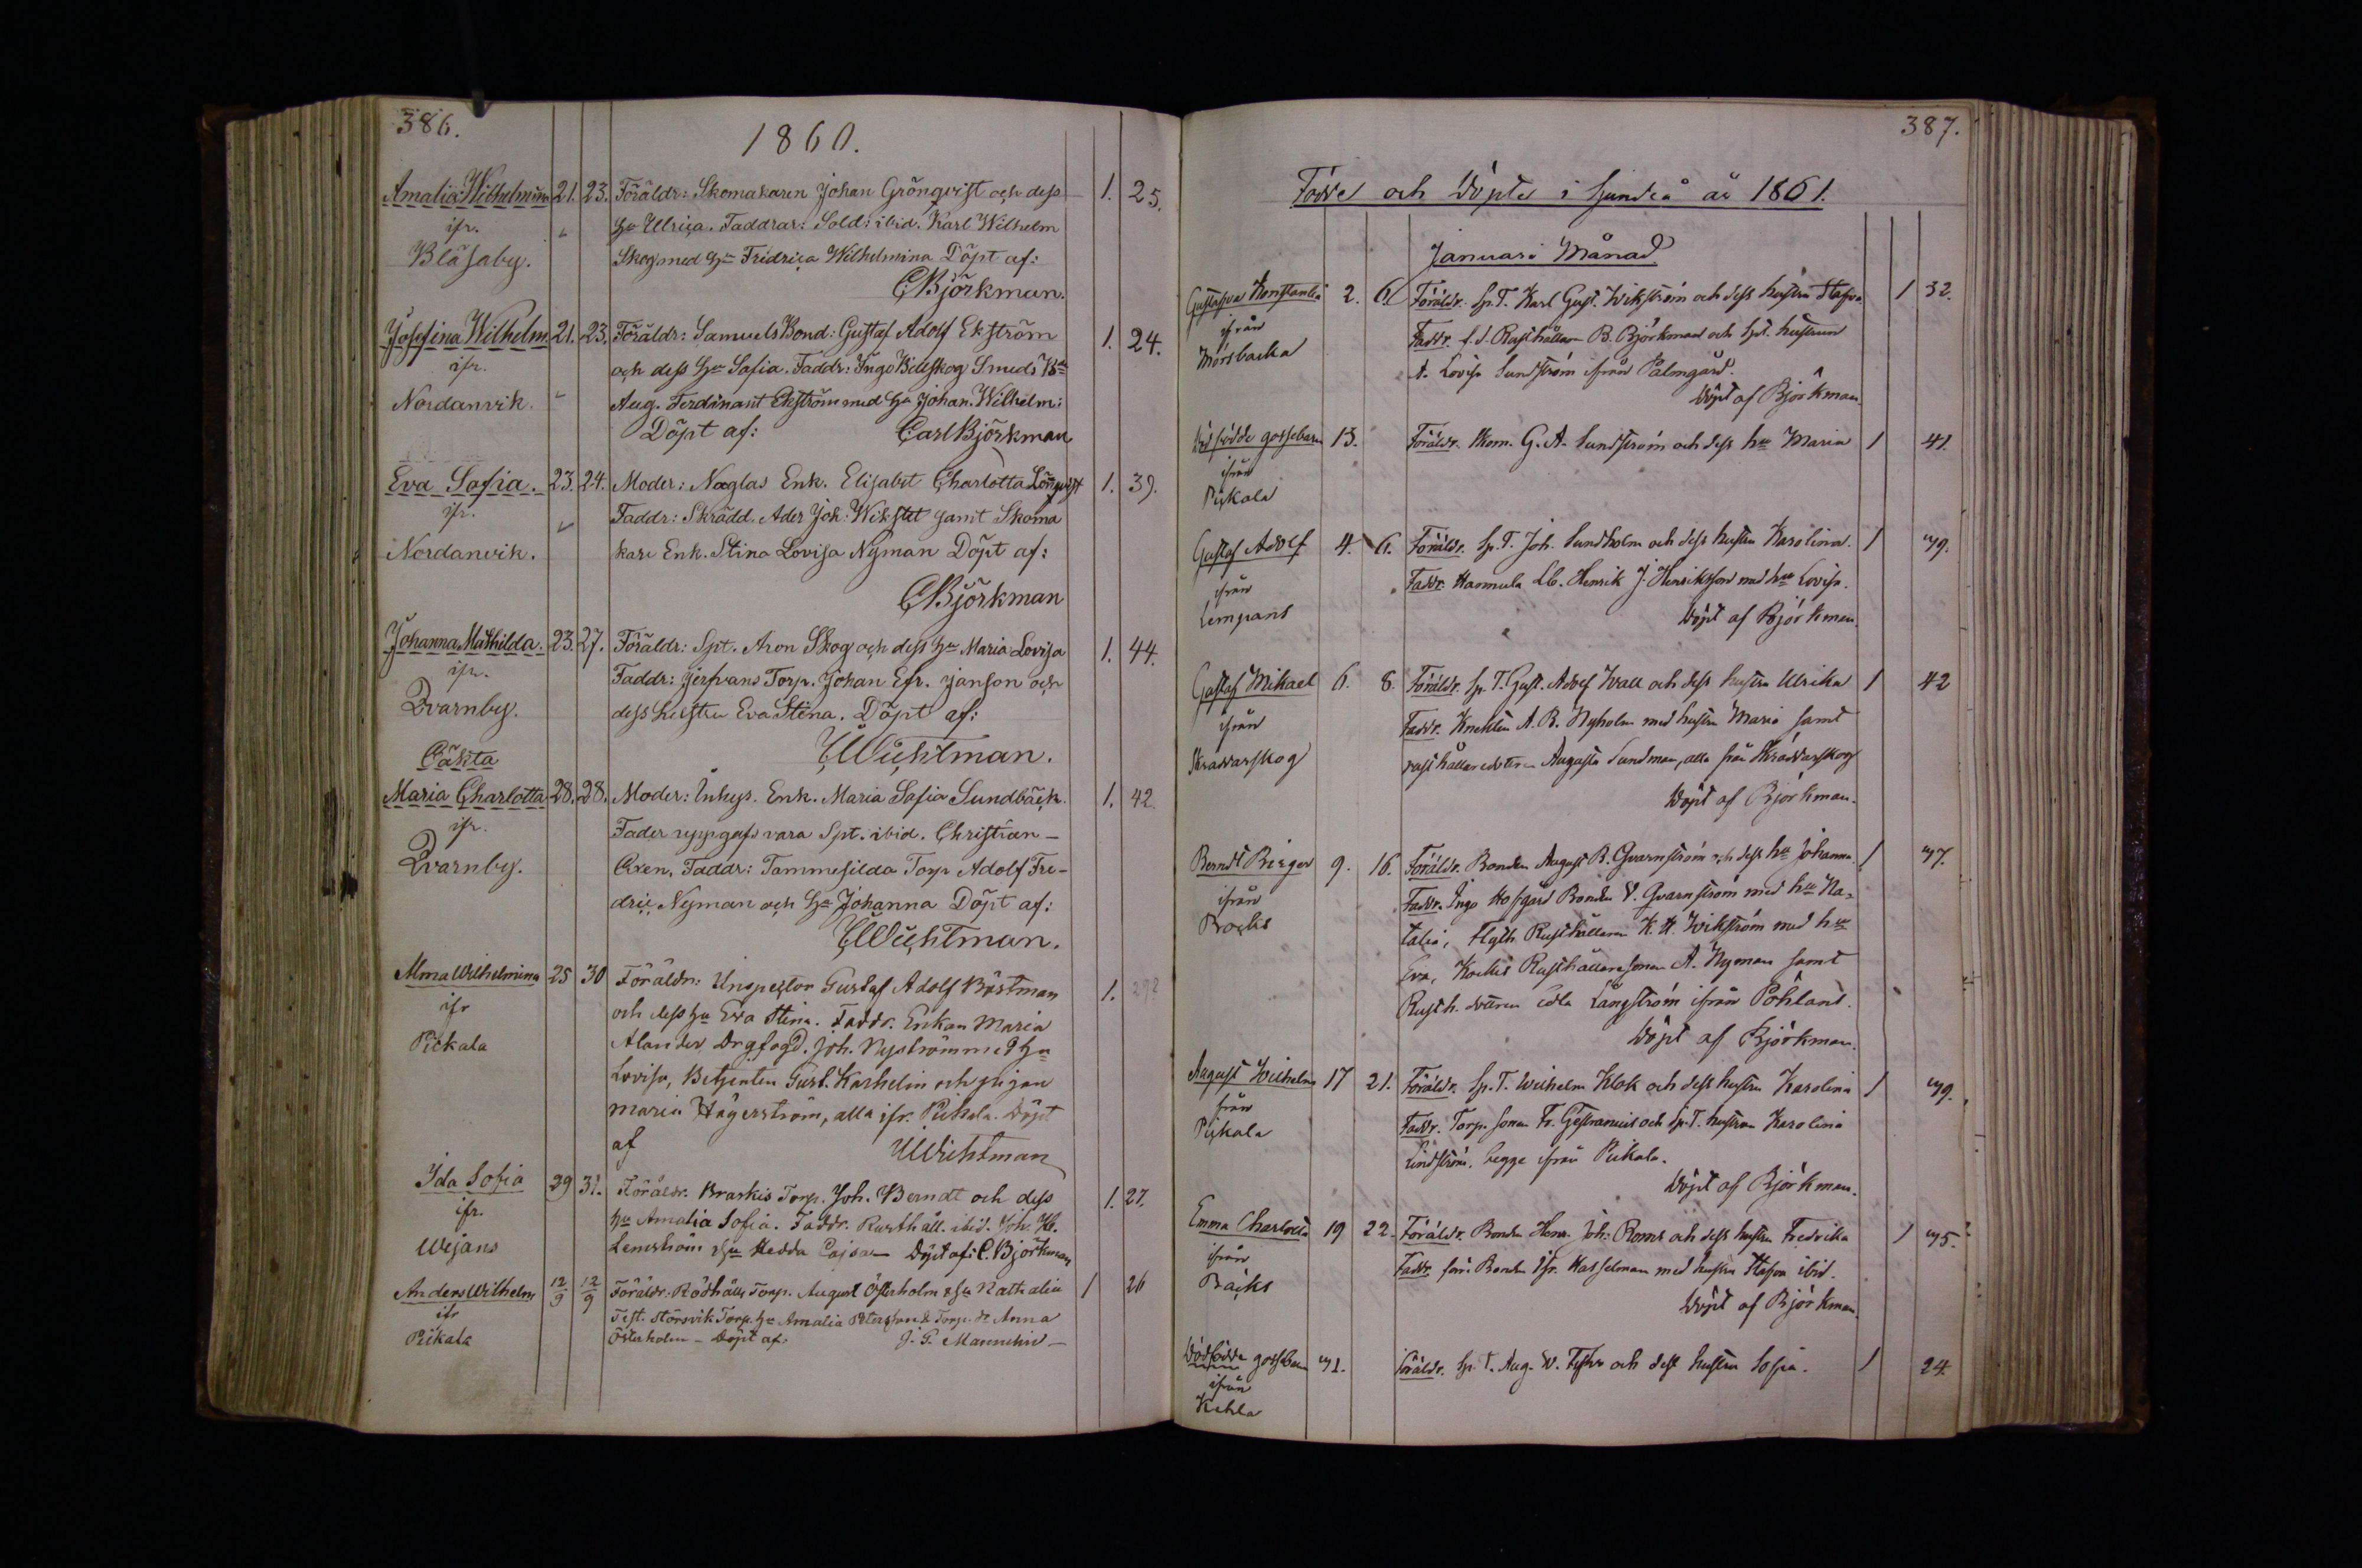 386.
1860.
Amalia Wilhelmina 21. 23. Föräldr: Skomakaren Johan Grönqvist och dess 1. 25.
ifr. hu Ulrica. Faddrar: Sold: ibid. Karl Wilhelm
Bläsaby. Skog med hu Fredrica Wilhelmina Döpt af:
CBjörkman.
Josefina Wilhelm. 21. 23. Föräldr: Samuels Bond: Gustaf Adolf Ekström 1. 24.
ifr. och dess hu Sofia. Faddr: Ingo Smeds
Nordanvik. Aug. Ferdinant Ekström med hu Johan. Wilhelm:
Döpt af: Carl Björkman
Eva Sofia. 23. 24. Moder: Næglas Enk. Elisabet Charlotta Lönqvist 1. 39.
ifr. Faddr: Skrädd. Joh: Wikstet samt Skoma
Nordanvik. kare Enk. Stina Lovisa Nyman Döpt af:
CBjörkman
Johanna Mathilda. 23. 27. Föräldr: Spt. Aron Skog och dess hu Maria Lovisa 1. 44.
ifr. Faddr: Torp. Johan Efr. Janson och
Qvarnby. dess hustru Eva Stina. Döpt af:
Oäkta Wichtman.
Maria Charlotta 28. 28. Moder: Inhys. Enk. Maria Sofia Sundbäck. 1. 42.
ifr. Fader uppgafs vara Spt. ibid. Christian
Qvarnby. Oxen, Faddr: Torp Adolf Fre-
dric Nyman och hu Johanna Döpt af:
Wichtman.
Alma Wilhelmina 25 30 Föräldr: Inspector Gustaf Adolf Böstman 1.
ifr och dess hu Eva Stina. Faddr. Enkan Maria
Pickala Alander Drgfogd. Joh. Nyström med hu
Lovisa, Betjenten Gust. Karhelin och pigan
Maria Hägerström, alla ifr. Pickala. Döpt
af Wichtman
Ida Sofia 29 31. Föräldr. Braskis Torp. Joh. Berndt och dess 1. 27.
ifr. hu Amalia Sofia. Faddr. Rusthåll. ibid. Joh.
Wejans Lemström hu Hedda Cajsa Döpt af: C. Björkman
Anders Wilhelm 12/9 12/9 Föräldr: Rödhälls Torp. August Österholm & hu Nathalia 1 26
ifr Test. Störsvik Torp. hu Amalia Peterson & Torp. Anna
Pickala Österholm - Döpt af:
387.
Födde och Döpte i Sjundeå år 1861.
Januari Månad
Gustafva Konstantia 2. 6. Föräldr. Sp.T. Karl Gust. Wikström och dess hustru Stafva. 1 32.
ifrån Faddr. f.d. Rusthållare B. Björkman och Spt. hustrun
Mörsbacka A. Lovisa Sundström ifrån Palmgård.
Döpt af Björkman.
Dödfödde gossebarn 13. Föräldr. Skom. G. A. Sundström och dess hu Maria 1 41.
ifrån
Pickala
Gustaf Adolf 4. 6. Föräldr. Sp.T. Joh. Sundholm och dess hustru Karolina. 1
ifrån Faddr. Hannula Lb. Henrik J. Henriksson med hu Lovisa.
Lempans Döpt af Björkman.
Gustaf Mikael 6. 8. Föräldr. Sp.T. Gust. Adolf Wall och dess hustru Ulrika 1 42
ifrån Faddr. Knekten A. R. Nyholm med hustru Maria samt
Skräddarskog rusthållaredottren Augusta Sandman, alla från Skräddarskog
Döpt af Björkman.
Berndt Birger 9. 16. Föräldr. Bonden August B. Qvarnström och dess hu Johanna. 1
ifrån Faddr. Ingo Hofgård Bonden V. Qvarnström med hu Na-
Backs talia, Rusthållaren K. H. Wikström med hu
Eva, Rusthållaresonen A. Nyman samt
Rusth. dottren Edla Långström ifrån Pohland.
Döpt af Björkman.
August Wilhelm 17 21. Föräldr. Sp.T. Wilhelm Klok och dess hustru Karolina 1
från Faddr. Torp. sonen Fr. och Sp.T. hustrun Karolina
Pickala Lindström, begge ifrån Pickala.
Döpt af Björkman.
Emma Charlotta 19 22. Föräldr. Bonden Joh: Roms och dess hustru Fredrika 1
ifrån Faddr. Bonden Hasselman med hustru Stafva ibid.
Bäcks Döpt af Björkman.
Dödfödde gossebarn Föräldr. Sp.T. Aug. W. och dess hustru Sofia. 1 24.
ifrån
Kehla